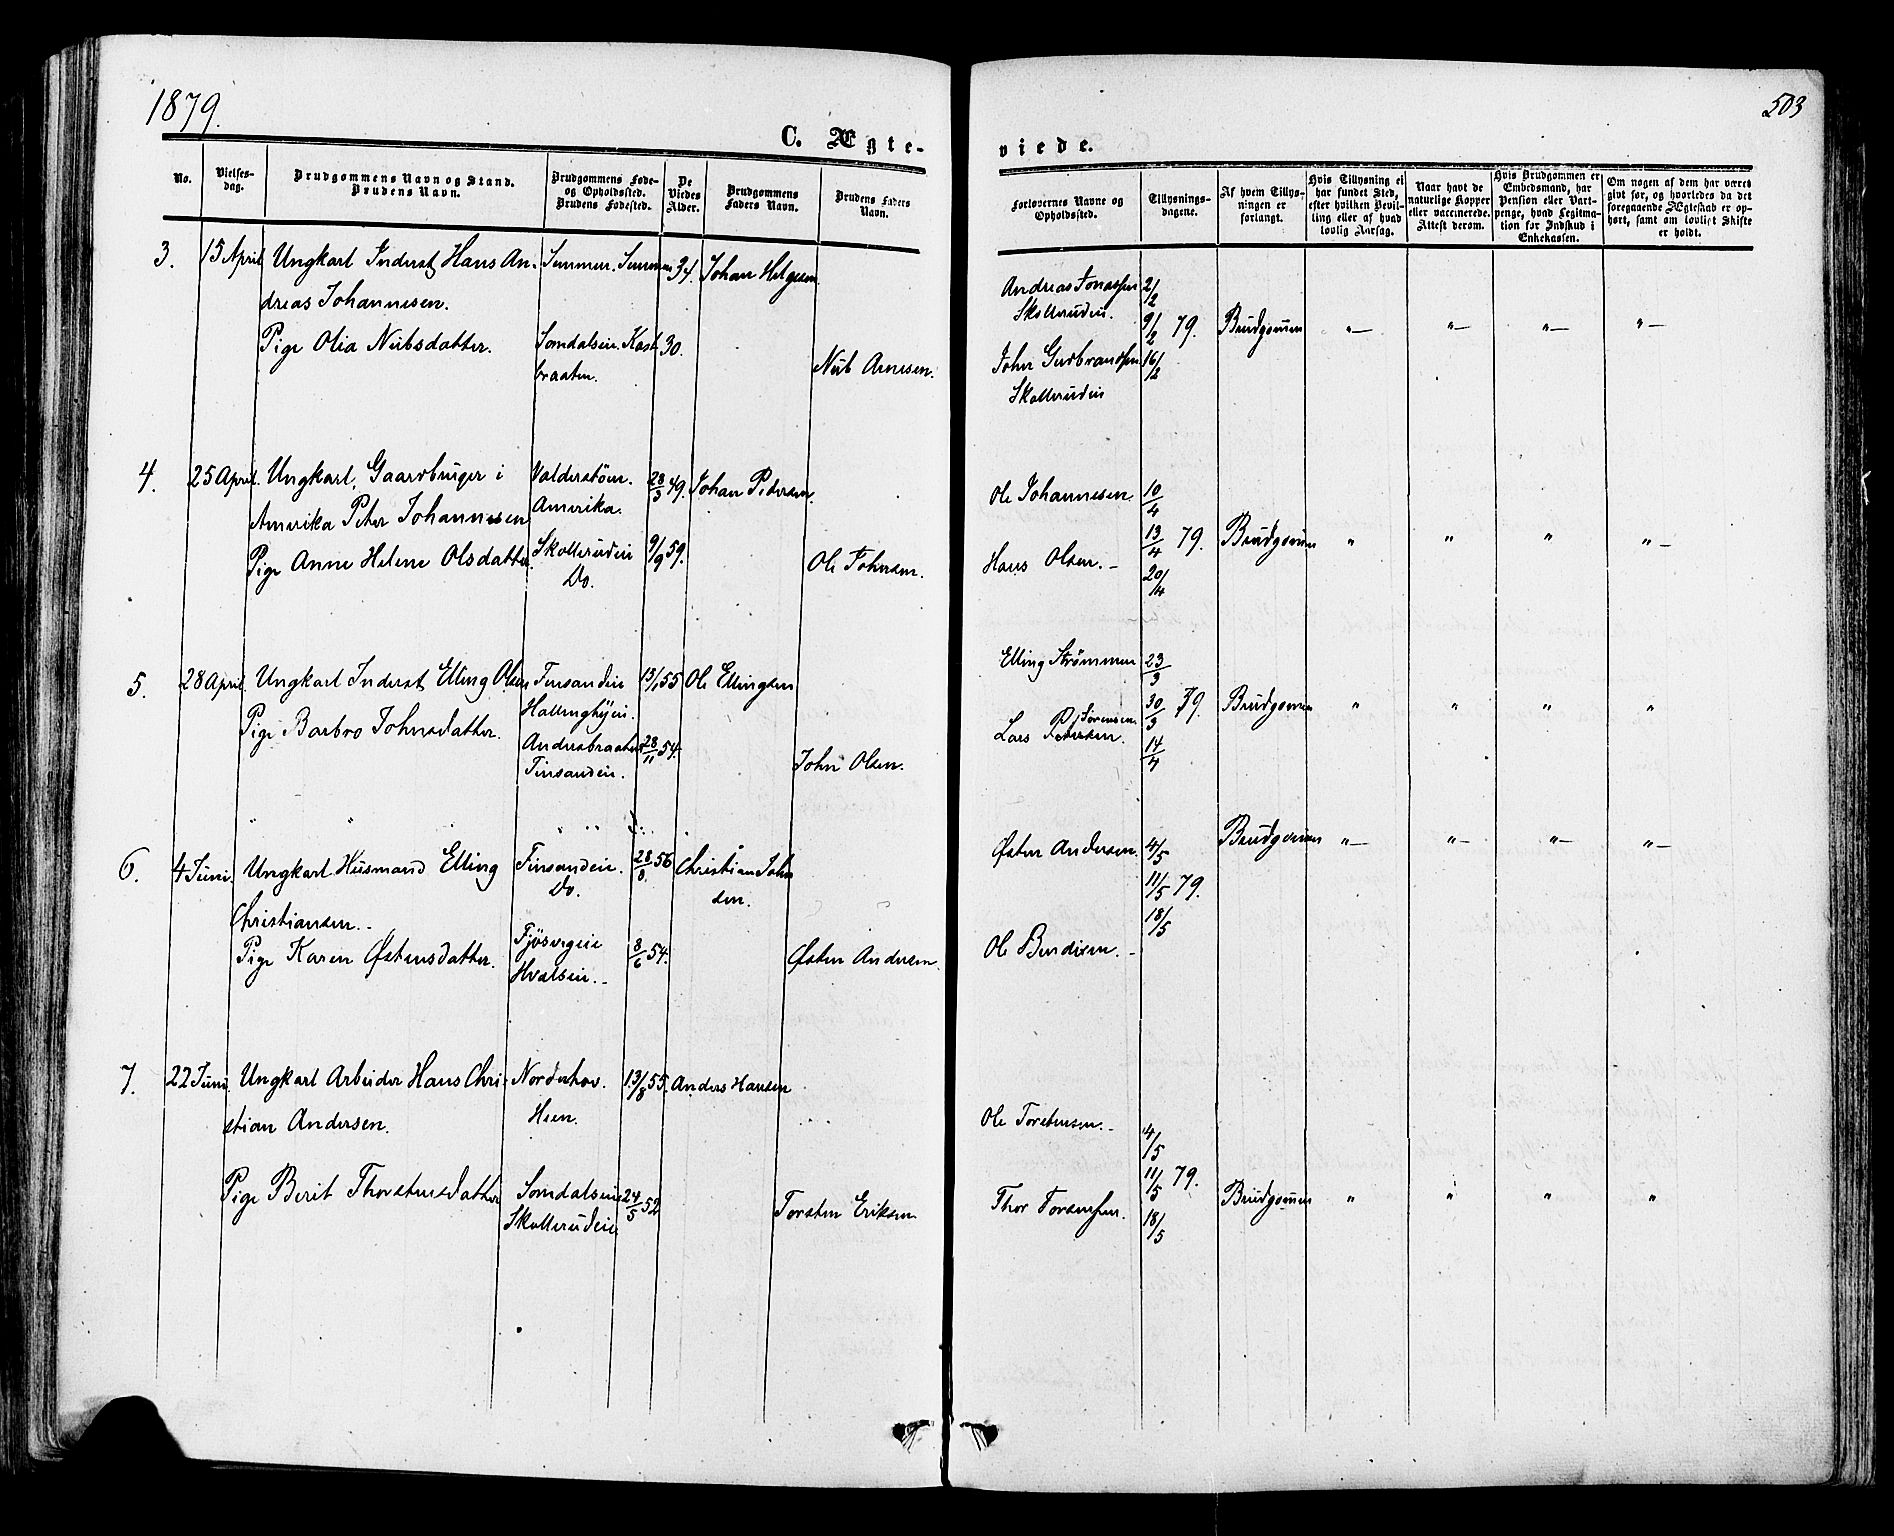 1879.
503
C. Ægte-
viede.
No.
Vielses-
dag.
Brudgommens Navn og Stand.
Brudens Navn.
Brudgommens Føde-
og Opholdssted.
Brudens Fødested.
De
Viedes
Alder.
Brudgommens
Faders Navn.
Brudens Faders
Navn.
Forlovernes Navne og
Opholdssted.
Tillysnings-
dagene.
Af hvem Tillys-
ningen er
forlangt.
Hvis Tillysning ei
har fundet Sted,
efter hvilken Bevil-
ling eller af hvad
lovlig Aarsag.
Naar havt de
naturlige Kopper
eller vaccinerede.
Attest derom.
Hvis Brudgommen er
Embedsmand, har
Pension eller Vart-
penge, hvad Legitima-
tion for Indskud i
Enkekassen.
Om nogen af dem har været
gift før, og hvorledes da det
foregaaende Ægteskab er op-
hørt, samt om lovligt Skifte
er holdt.
3. 15 April Ungkarl Inderst Hans An- 34. Johan Helgesen
dreas Johannesen.
Pige Olia Nubsdatter. Somdalseie. Kast- 30.
braaten.
Nub Arnesen.
Andreas Jonassen 2/2
Skollerudeie. 9/2 79. Brudgommen " " " "
John Gudbrandsen 16/2
Skollerudeie
4. 25 April. Ungkarl, Gaardbruger i 28/3 49. Johan Pedersen.
Amerika Peter Johannesen Amerika.
Pige Anne Helene Olsdatter. Skollerudeie 9/9 59. Ole Johnsen.
Do.
Ole Johannesen 10/4
13/4 79. Brudgommen " " " "
Hans Olsen. 20/4
5. 28 April. Ungkarl Inderst Elling Olsen Finsandeie 13/1 55 Ole Ellingsen
Pige Barbro Johnsdatter. Hallinghyeie.
Andersbraaten 28/11 54. John Olsen.
Finsandeie.
Elling Strømmen 23/3
30/3 79. Brudgommen " " " "
Lars Sørensen. 14/4
6. 4 Juni. Ungkarl Husmand Elling Finsandeie. 28/8 56 Christian John
Do. sen.
Christiansen.
Pige Karen Østensdatter. Fjøsvigeie 8/6 54. Østen Andersen.
Hvalseie.
Østen Andersen. 4/5 Brudgommen " " " "
11/5 79.
18/5
Ole Bendixen.
7. 22 Juni. Ungkarl Arbeider Hans Chri- Norderhov. 13/8 55. Anders Hansen
stian Andersen. Heen.
Pige Berit Thorstensdatter Somdalseie 24/5 52 Torsten Eriksen
Skollerudeie
Ole Torstensen. 4/5
11/5 79. Brudgommen " " " "
Thor 18/5